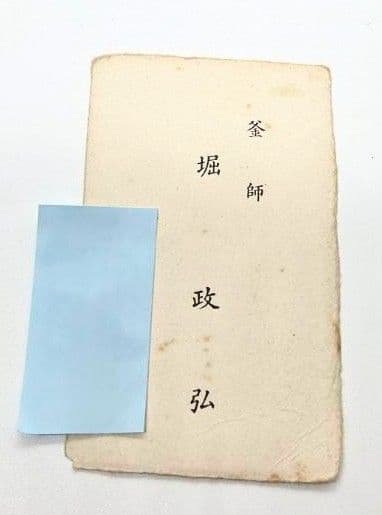 釜師
堀政弘